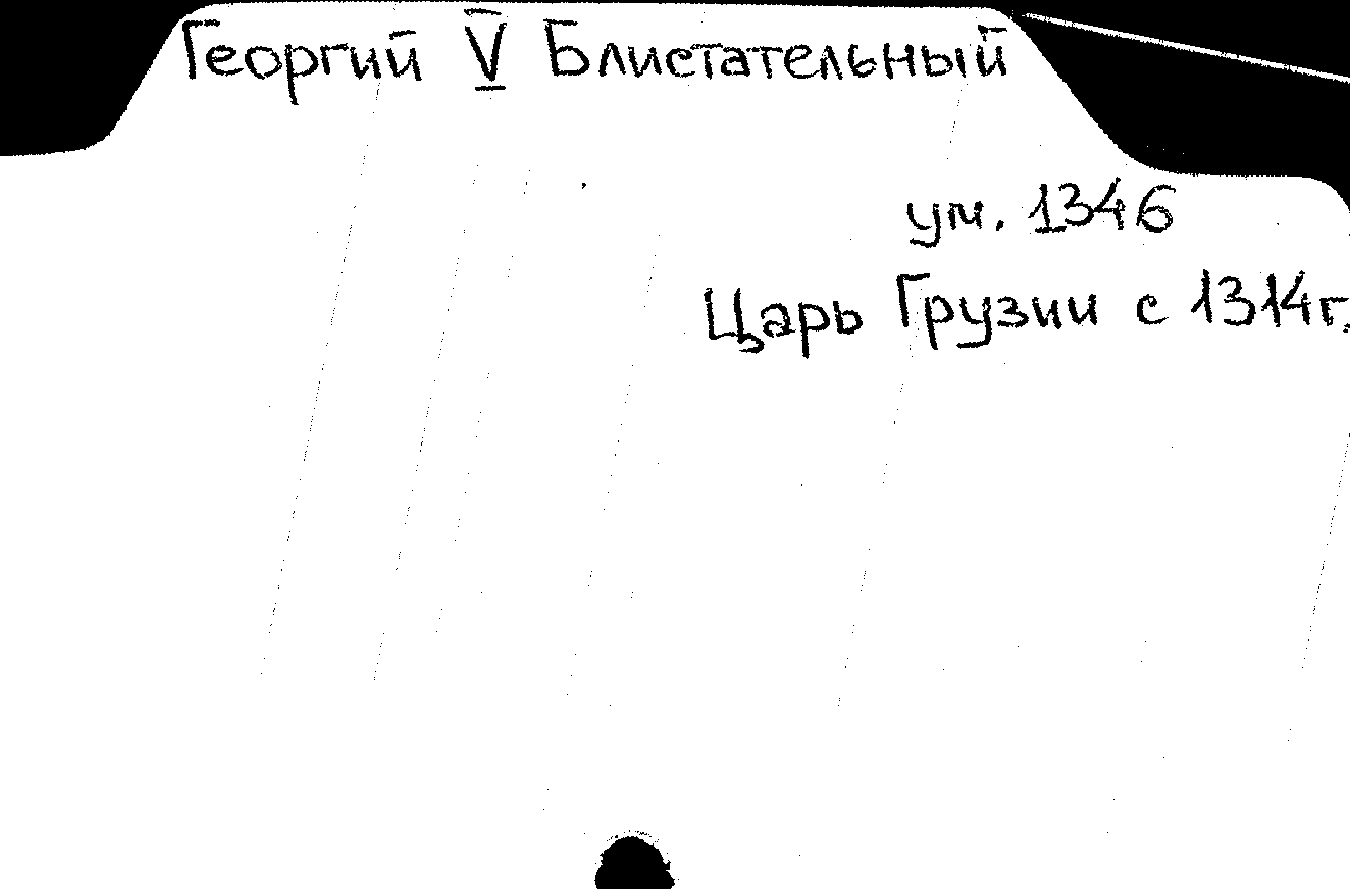 Георгий V Блистательный
ум. 1346
Царь Грузии с 1314г.